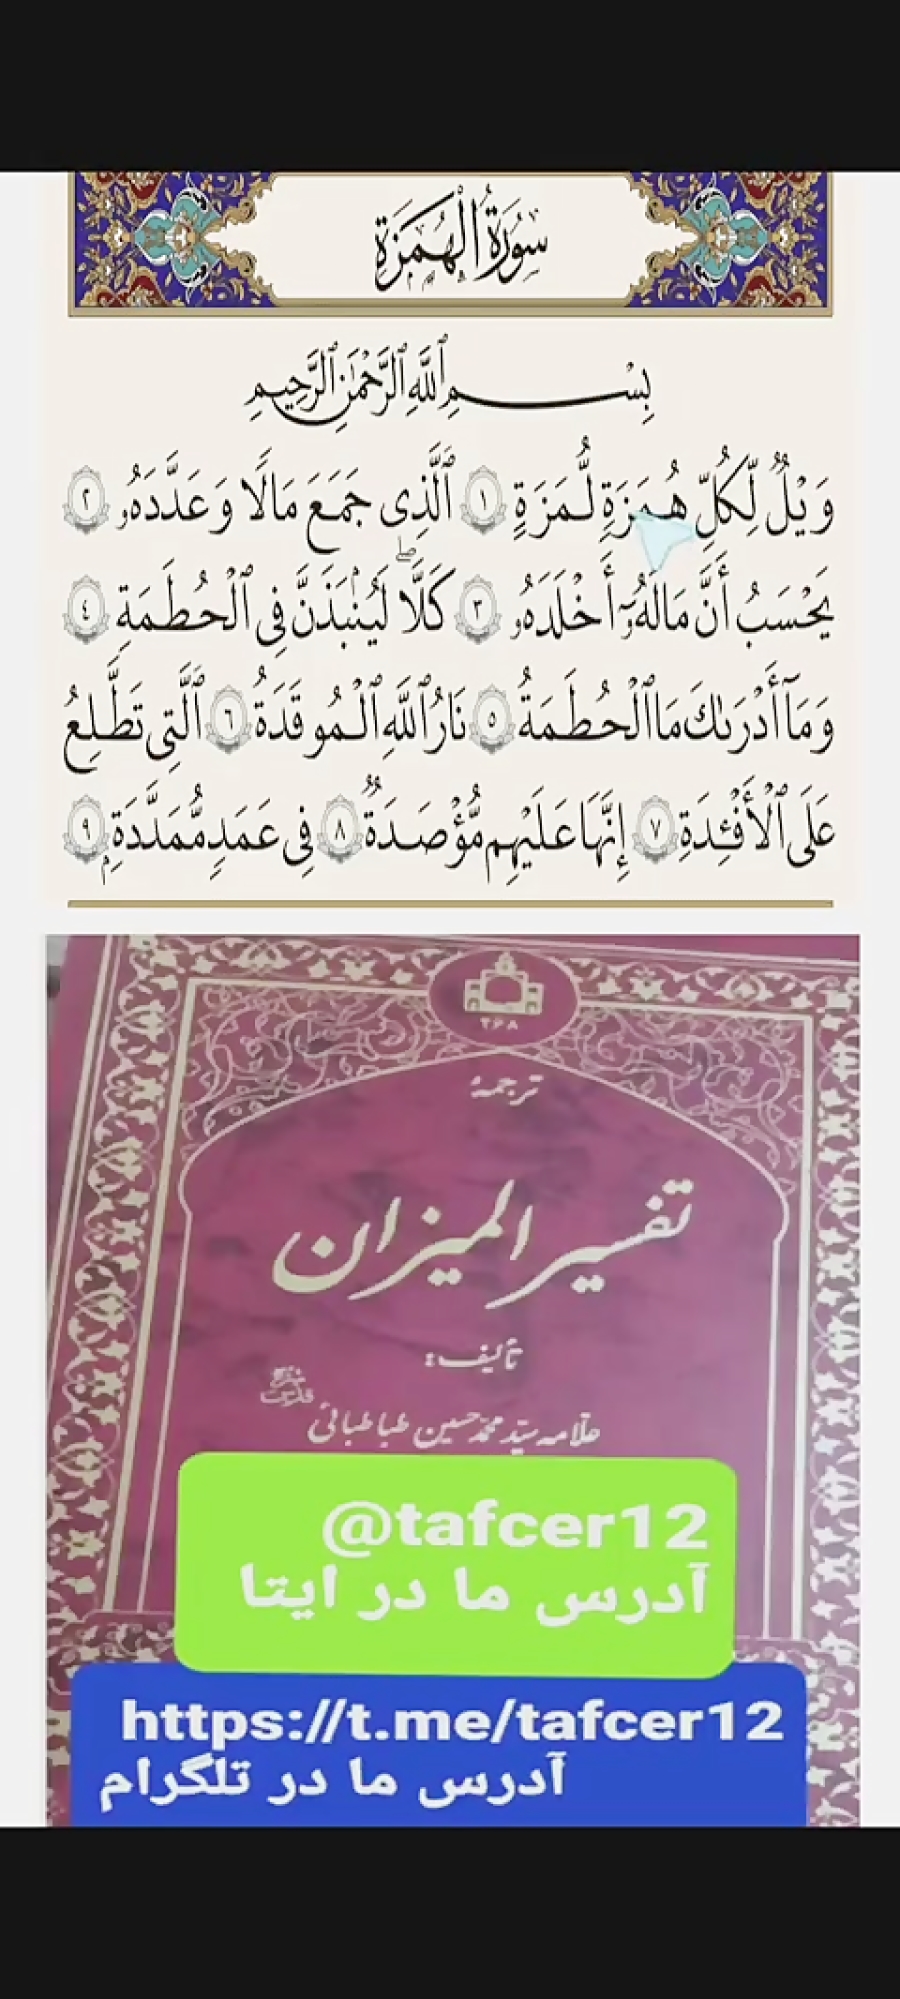 سُورَةُ الْهُمَزَةِ
بِسْمِ ٱللَّهِ ٱلرَّحْمَٰنِ ٱلرَّحِيمِ
وَيْلٌ لِّكُلِّ هُمَزَةٍ لُّمَزَةٍ ١ ٱلَّذِى جَمَعَ مَالًا وَعَدَّدَهُۥ ٢
يَحْسَبُ أَنَّ مَالَهُۥٓ أَخْلَدَهُۥ ٣ كَلَّا ۖ لَيُنۢبَذَنَّ فِى ٱلْحُطَمَةِ ٤
وَمَآ أَدْرَىٰكَ مَا ٱلْحُطَمَةُ ٥ نَارُ ٱللَّهِ ٱلْمُوقَدَةُ ٦ ٱلَّتِى تَطَّلِعُ
عَلَى ٱلْأَفْـِٔدَةِ ٧ إِنَّهَا عَلَيْهِم مُّؤْصَدَةٌ ٨ فِى عَمَدٍ مُّمَدَّدَةٍۭ ٩
۳۶۸
ترجمهٔ
تفسیر المیزان
تألیف:
علامه سیّد محمّد حسین طباطبائی
@tafcer12
آدرس ما در ایتا
https://t.me/tafcer12
آدرس ما در تلگرام